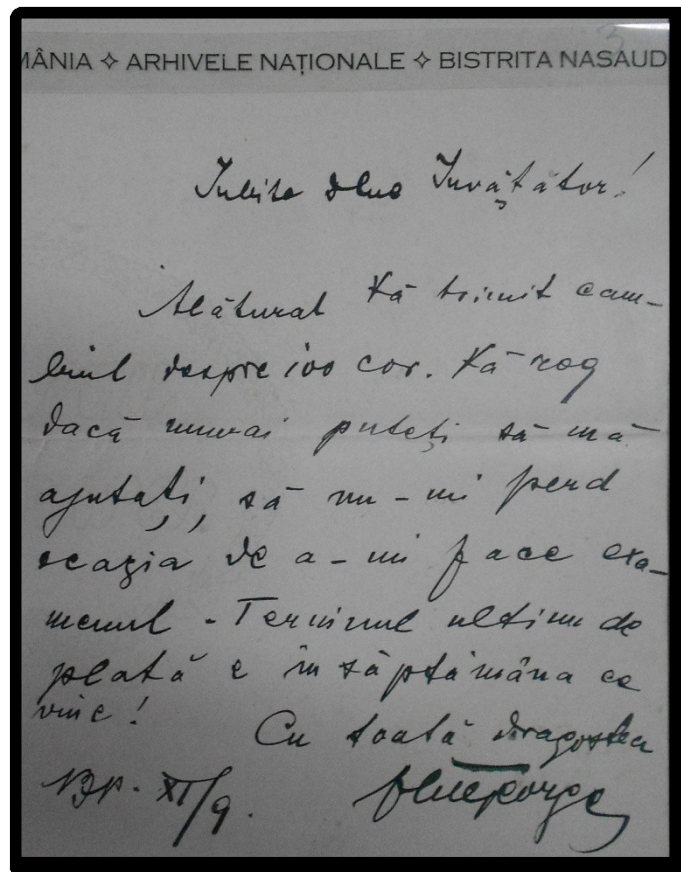 MÂNIA ✧ ARHIVELE NAȚIONALE ✧ BISTRITA NASAUD
Iubite dle Învățător!
Alăturat Vă trimit cam-
biul despre 100 cor. Vă rog
dacă numai puteți să mă
ajutați, să nu-mi perd
ocazia de a-mi face exa-
menul - Terminul ultim de
plată e în săptămâna ce
vine!
Cu toată dragostea
BP. XI/9.